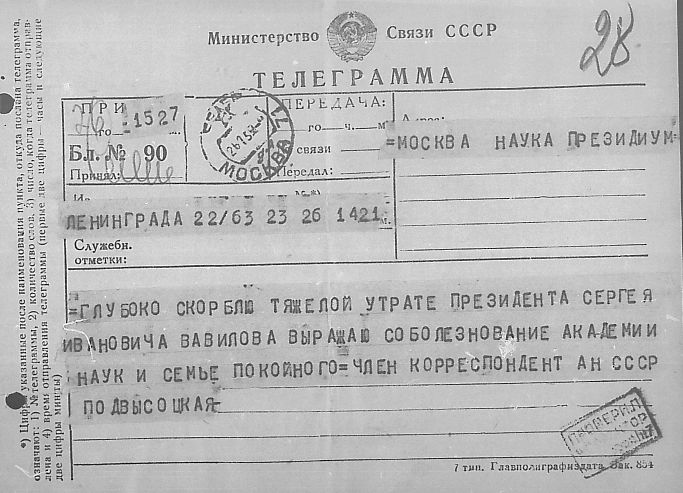 28
Министерство Связи СССР
ТЕЛЕГРАММА
ПРИ
го 1527
Бл. № 90
Принял:
МОСКВА
ПЕРЕДАЧА:
го ч. м
связи
Передал:
=МОСКВА НАУКА ПРЕЗИДИУМ=
ЛЕНИНГРАДА 22/63 23 26 1421
Служебн.
отметки:
=ГЛУБОКО СКОРБЛЮ ТЯЖЕЛОЙ УТРАТЕ ПРЕЗИДЕНТА СЕРГЕЯ
ИВАНОВИЧА ВАВИЛОВА ВЫРАЖАЮ СОБОЛЕЗНОВАНИЕ АКАДЕМИИ
НАУК И СЕМЬЕ ПОКОЙНОГО=ЧЛЕН КОРРЕСПОНДЕНТ АН СССР
ПОДВЫСОЦКАЯ=
ПРОВЕРИЛ
7 тип. Главполиграфиздата. Зак. 854
*) Цифры, указанные после наименования пункта, откуда послана телеграмма,
означают: 1) № телеграммы, 2) количество слов, 3) число, когда телеграмма отправ-
лена и 4) время отправления телеграммы (первые две цифры — часы и следующие
две цифры минуты)